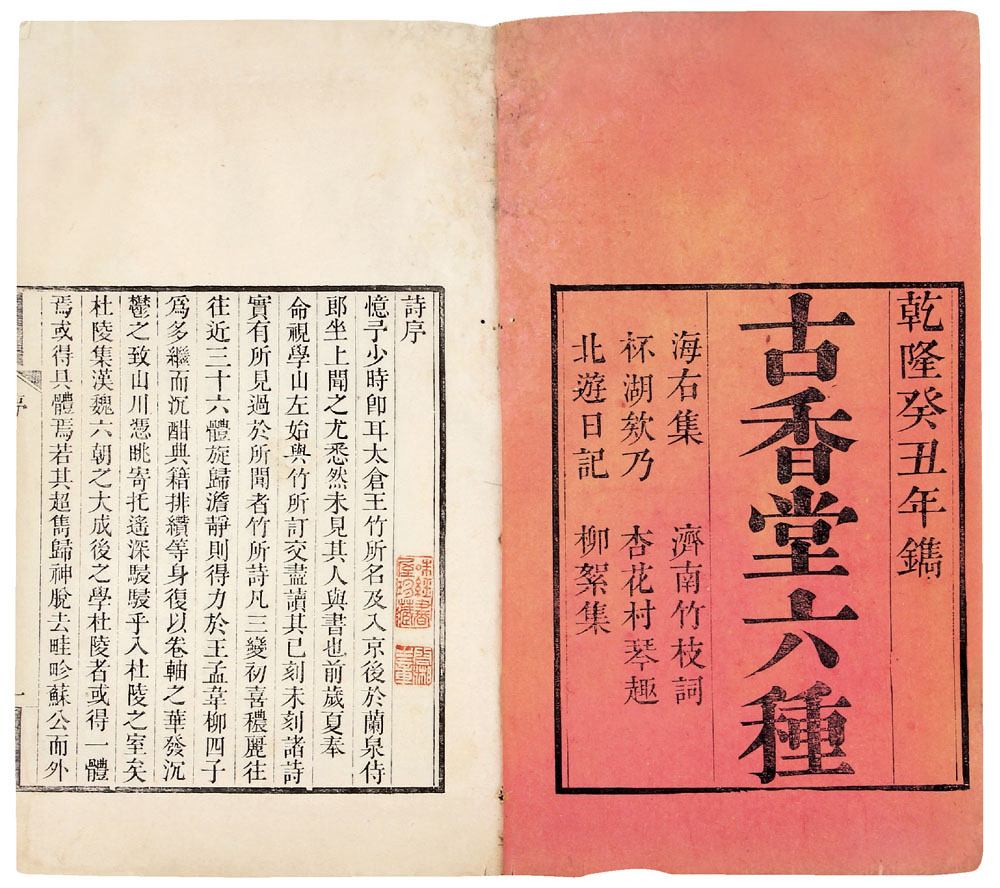 乾隆癸丑年鐫
古香堂六種
海右集 濟南竹枝詞
杯湖欸乃 杏花村琴趣
北遊日記 柳絮集
詩序
憶予少時卽耳太倉王竹所名及入京後於蘭泉侍
郎坐上聞之尤悉然未見其人與書也前歲夏奉
命視學山左始與竹所訂交盡讀其已刻未刻諸詩
實有所見過於所聞者竹所詩凡三變初喜穠麗往
往近三十六體旋歸澹靜則得力於王孟韋柳四子
爲多繼而沉酣典籍排纘等身復以卷軸之華發沉
鬱之致山川憑眺寄托遙深駸駸乎入杜陵之室矣
杜陵集漢魏六朝之大成後之學杜陵者或得一體
焉或得具體焉若其超雋歸神脫去畦畛蘇公而外
序
一
味經書屋珍藏